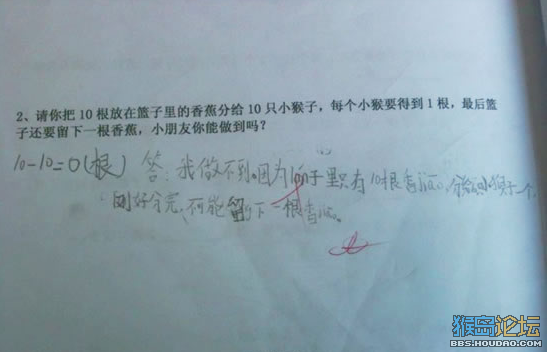 2、请你把10根放在篮子里的香蕉分给10只小猴子，每个小猴要得到1根，最后篮
子还要留下一根香蕉，小朋友你能做到吗？
10-10=0(根) 答：我做不到。因为子里只有10根香蕉，分给小猴子一个，
刚好分完，不可能留下一根香蕉。
猴岛论坛
BBS.HOUDAO.COM